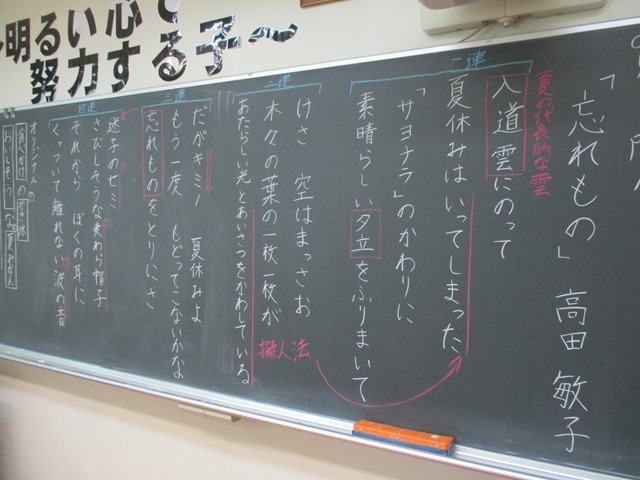 〜明るい心で
努力する子〜
「忘れもの」 高田敏子
一連
夏の代表的な雲
入道雲にのって
夏休みはいってしまった
「サヨナラ」のかわりに
素晴らしい夕立をふりまいて
二連
けさ 空はまっさお
木々の葉の一枚一枚が
あたらしい光とあいさつをかわしている
擬人法
三連
だがキミ! 夏休みよ
もう一度 もどってこないかな
忘れものをとりにさ
四連
迷子のセミ
さびしそうな麦わら帽子
それから ぼくの耳に
くっついて離れない波の音
食べかけの
夏みかん